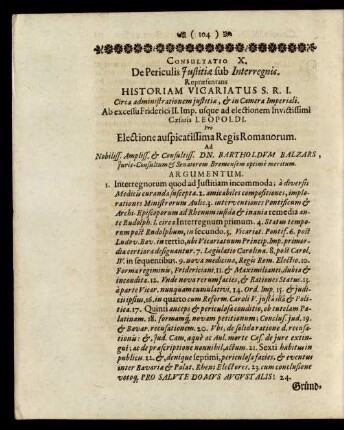 ( 104 )
CONSULTATIO X.
De Periculis Justitiæ sub Interregnis.
Repræsentans
HISTORIAM VICARIATUS S. R. I.
Circa administrationem justitiæ, & in Camera Imperiali.
Ab excessu Friderici II. Imp. usque ad electionem Invictissimi
Cæsaris LEOPOLDI.
Pro
Electione auspicatissima Regis Romanorum.
Ad
Nobiliss. Ampliss. & Consultiss. DN. BARTHOLDVM BALZARS,
Juris-Consultum & Senatorem Bremensem optimè meritum.
ARGUMENTUM.
1. Interregnorum quod ad Justitiam incommoda; à diversis
Medicis curanda suscepta. 2. amicabiles compositiones, implo-
rationes Ministrorum Aulic. 3. interventiones Pontificum &
Archi-Episcoporum ad Rhenum infida & inania remedia an-
te Rudolph. I. circa Interregnum primum. 4. Status tempo-
rum post Rudolphum, in secundo. 5. Vicariat. Pontif. 6. post
Ludov. Bav. in tertio, ubi Vicariatuum Princip. Imp. primor-
dia certiora designantur. 7. Legislatio Carolina. 8. post Carol.
IV. in sequentibus. 9. nova medicina, Regis Rom. Electio. 10.
Forma regiminis, Fridericiani. 11. & Maximilianei, dubia &
incondita. 12. Unde nova rerum facies, & Rationes Status. 13.
à parte Vicar. nunquam cumulativæ, 14. Ord. Imp. 15. & judi-
cii ipsius, 16. in quarto cum Reform. Caroli V. justa ista & Po-
litica. 17. Quinti anceps & periculosa conditio, ob tutelam Pa-
latinam. 18. formamq; novam petitionum: Conclus. jud. 19.
& Bavar. recusationem. 20. Ubi, de solida ratione d. recusa-
tionis: & Jud. Cam. aquæ ac Aul. morte Cæs. de jure extin-
gui: ac de præscriptione nonnihil, actum. 21. Sexti habitus in
publico. 22. &, denique septimi, periculosæ facies, & eventus
inter Bavariæ & Palat. Rheni Electores. 23. cum conclusione
votoq. PRO SALUTE DOMUS AUGUSTALIS: 24.
Gründ-